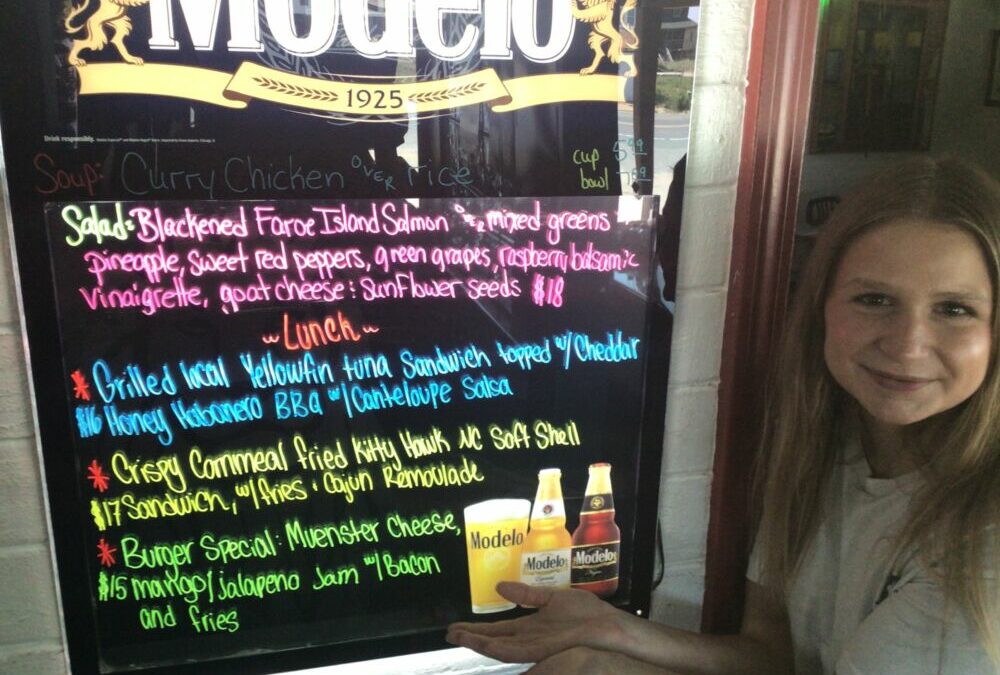 Modelo
1925
Drink responsibly.
Soup: Curry Chicken OVER rice
cup 5.99
bowl
Salad: Blackened Faroe Island Salmon OVER mixed greens
pineapple, sweet red peppers, green grapes, raspberry balsamic
vinaigrette, goat cheese : sunflower seeds $18
~ Lunch ~
* Grilled local Yellowfin tuna Sandwich topped w/ Cheddar
$16 Honey Habanero BBQ w/ Canteloupe Salsa
* Crispy Cornmeal fried Kitty Hawk NC Soft Shell
$17 Sandwich, w/ fries + Cajun Remoulade
* Burger Special: Muenster Cheese,
$15 mango/jalapeno Jam w/ Bacon
and fries
Modelo
Modelo
Especial
Modelo